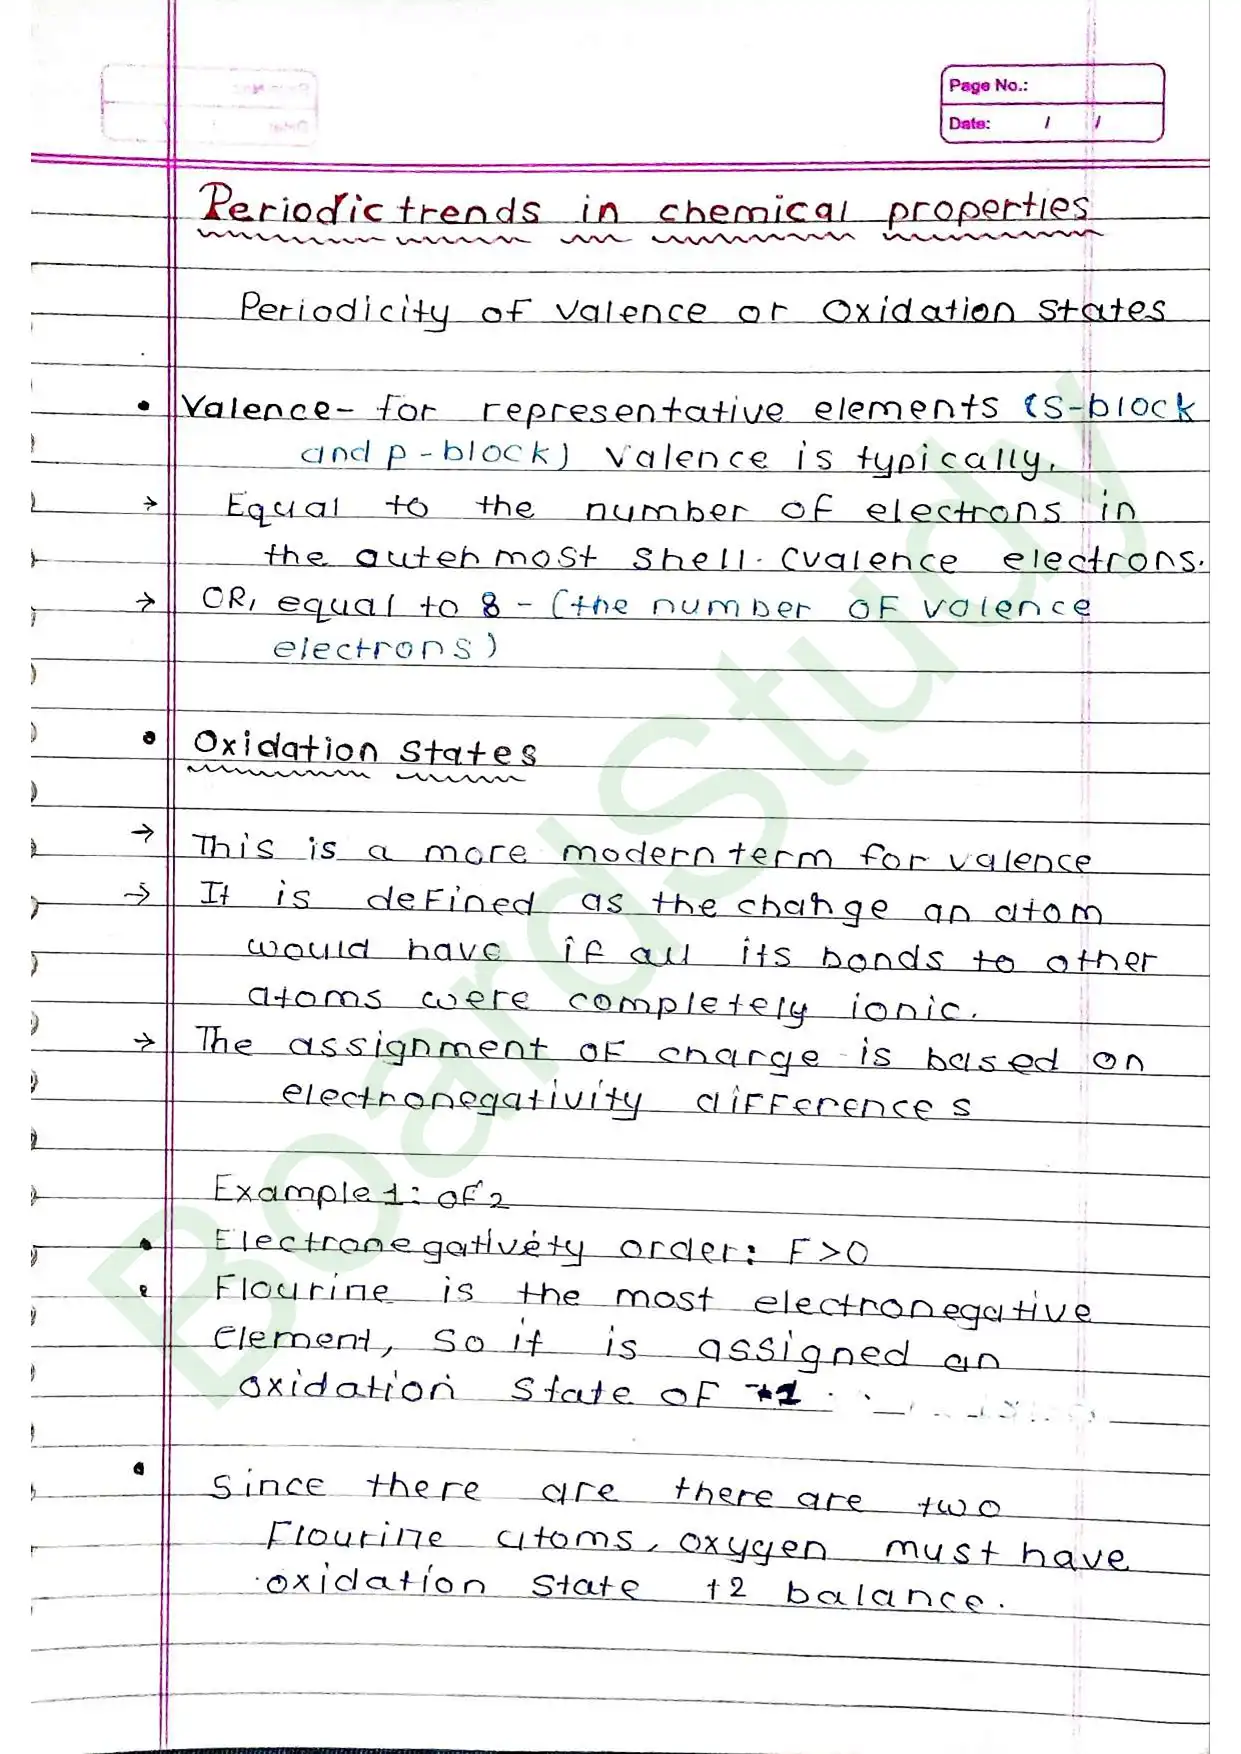 Page No.:
Date: / /
Periodic trends in chemical properties
Periodicity of valence or Oxidation States
• Valence- for representative elements (S-block
and p-block) Valence is typically.
→ Equal to the number of electrons in
the outermost shell. (valence electrons.
→ OR, equal to 8 - (the number of valence
electrons)
• Oxidation States
→ This is a more modern term for valence
→ It is defined as the change an atom
would have if all its bonds to other
atoms were completely ionic.
→ The assignment of charge is based on
electronegativity differences
Example 1: OF2
• Electronegativety order: F>O
• Flourine is the most electronegative
element, so it is assigned an
oxidation state of -1
• Since there are there are two
Flourine atoms, oxygen must have
oxidation state +2 balance.
BoardStudy